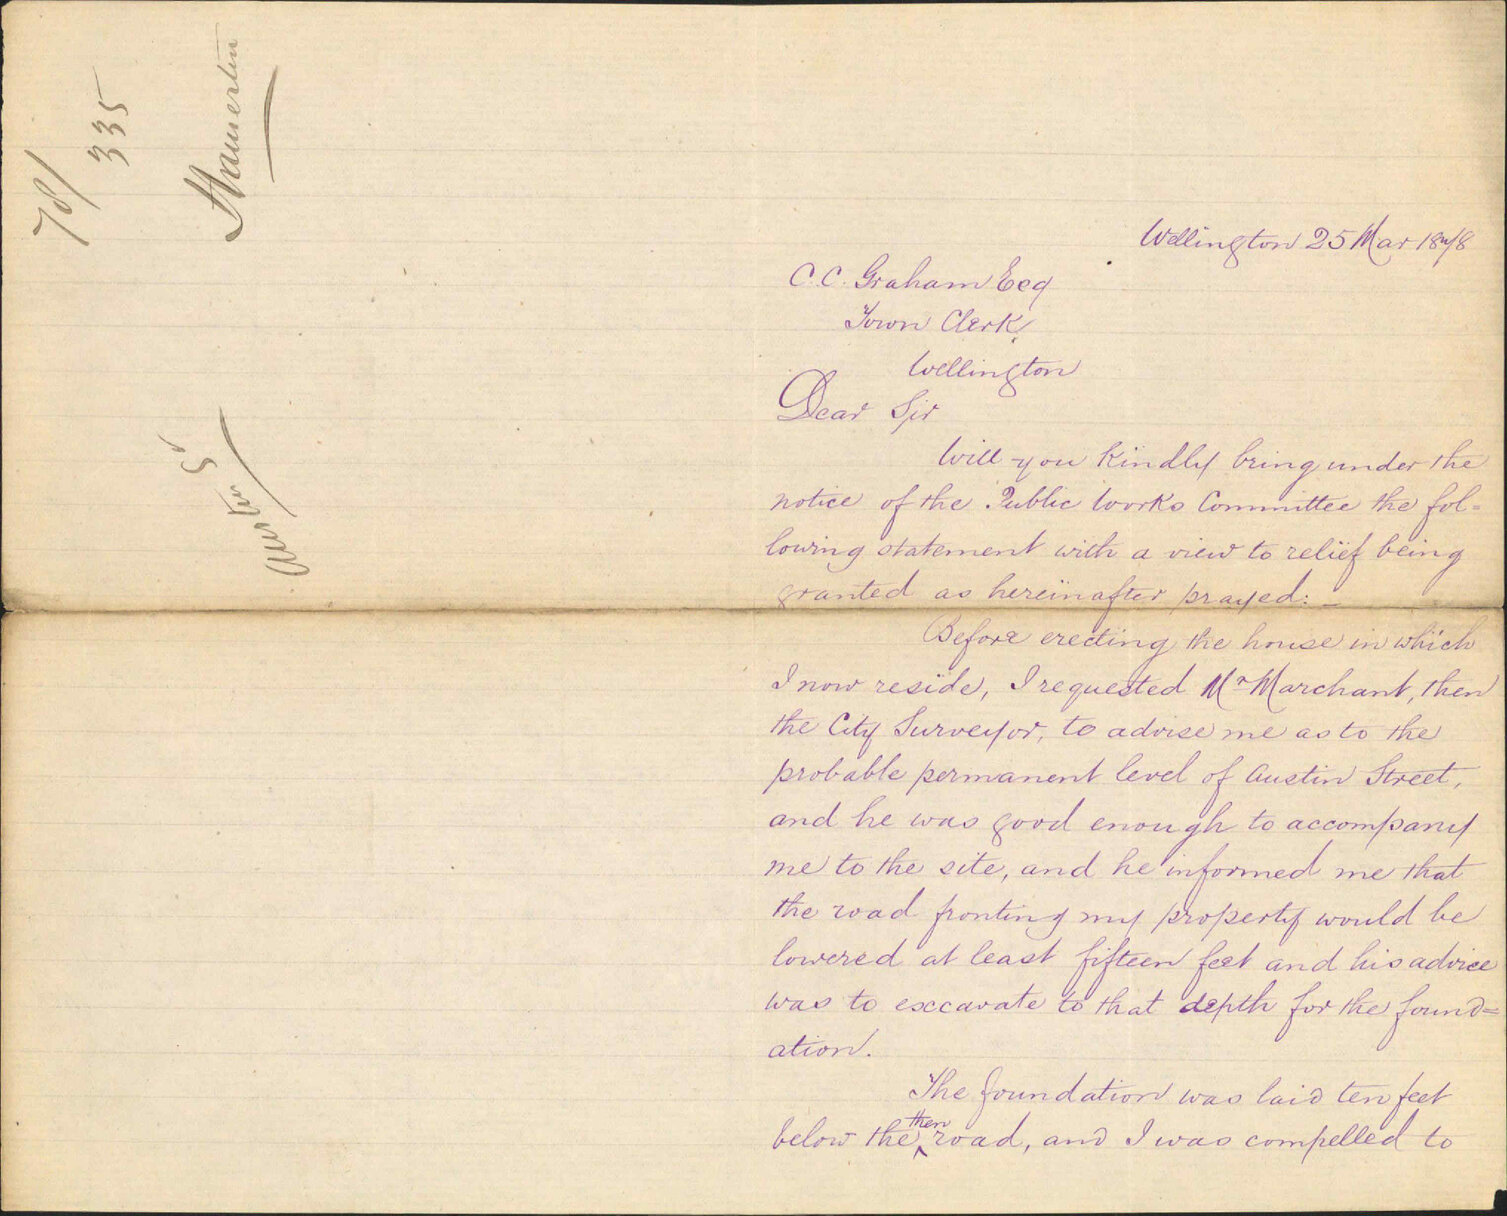 78/
335
Austin St
Wellington 25 Mar 1878
C. C. Graham Esq
Town Clerk
Wellington
Dear Sir
Will you kindly bring under the
notice of the Public Works Committee the fol=
lowing statement with a view to relief being
granted as hereinafter prayed: —
Before erecting the house in which
I now reside, I requested Mr Marchant, then
the City Surveyor, to advise me as to the
probable permanent level of Austin Street,
and he was good enough to accompany
me to the site, and he informed me that
the road fronting my property would be
lowered at least fifteen feet and his advice
was to exccavate to that depth for the found=
ation.
The foundation was laid ten feet
below the then road, and I was compelled to